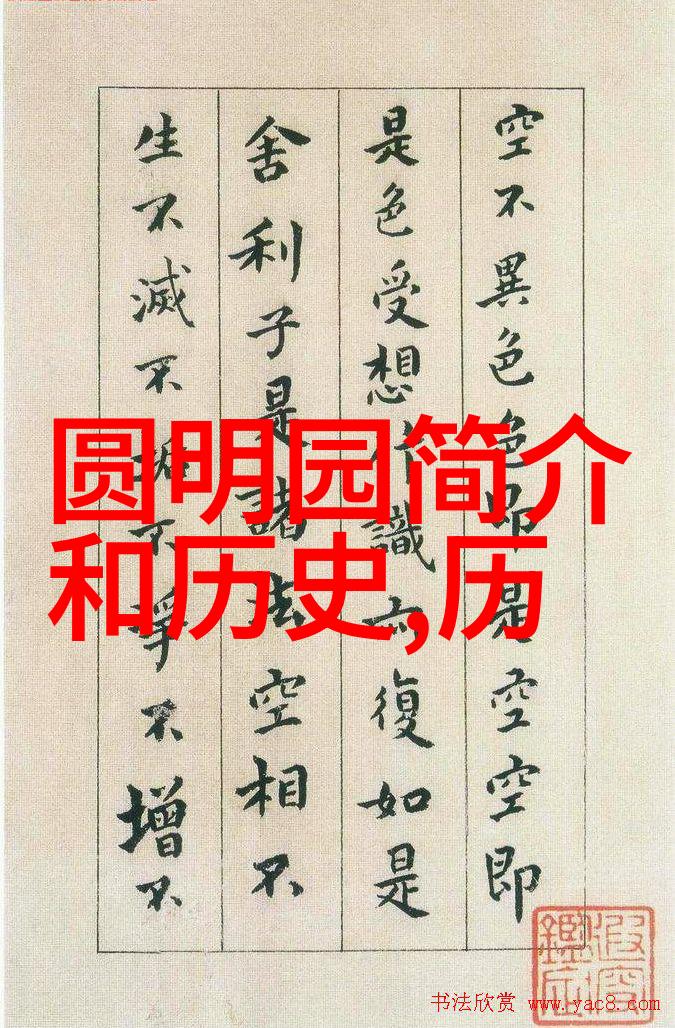 空不異色色即是空空即
是色受想行識亦復如是
舍利子是諸法空相不
生不滅不垢不淨不增不
圆明园简介
和历史,历
书法欣赏 www.yac8.com